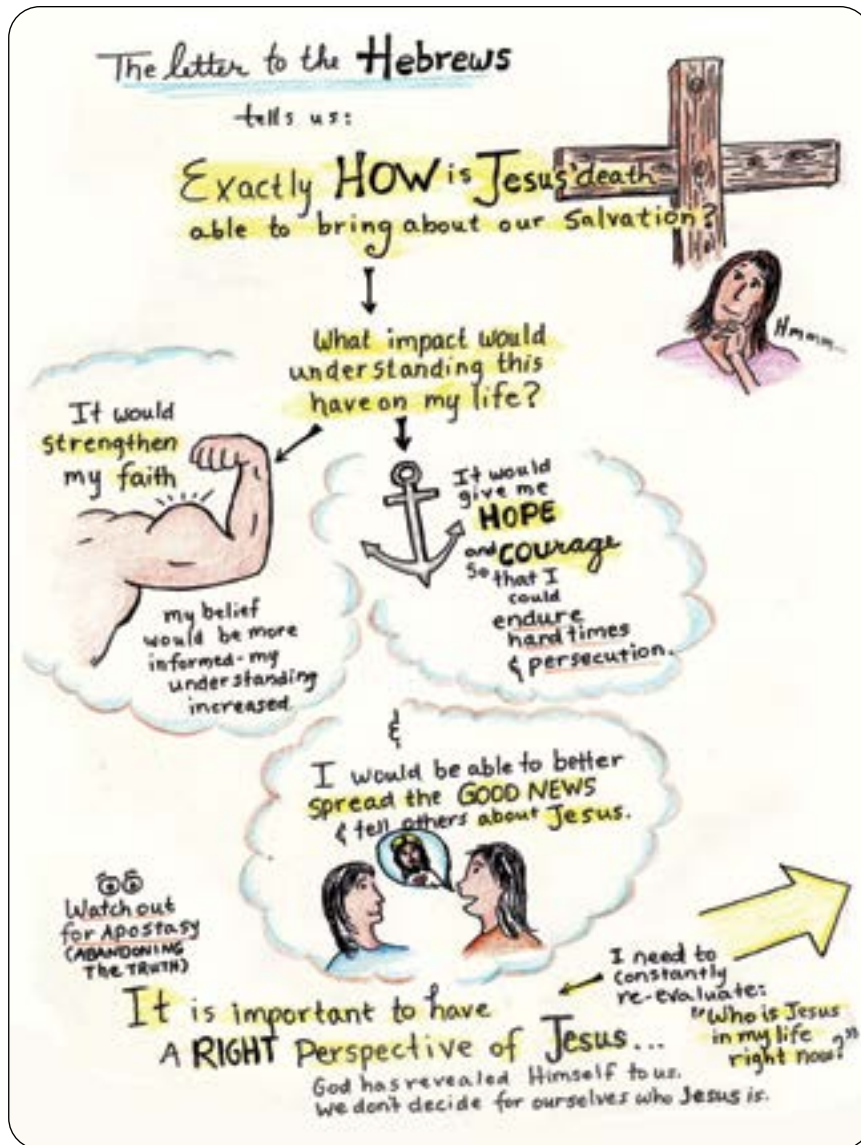 The letter to the Hebrews
tells us:
Exactly HOW is Jesus' death
able to bring about our Salvation?
Hmmm...
What impact would
understanding this
have on my life?
It would
strengthen
my faith
my belief
would be more
informed-my
understanding
increased.
It would
give me
HOPE
and COURAGE
so that I
could
endure
hard times
& persecution.
&
I would be able to better
spread the GOOD NEWS
& tell others about Jesus.
Watch out
for Apostasy
(ABANDONING
The TRUTH)
I need to
constantly
re-evaluate:
"Who is Jesus
in my life
right now?"
It is important to have
A RIGHT Perspective of Jesus...
God has revealed Himself to us.
We don't decide for ourselves who Jesus is.